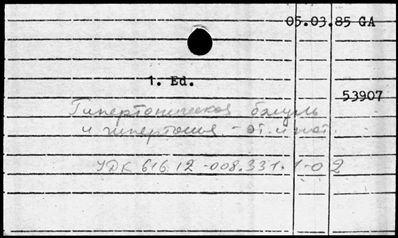 05.03.85 GA
1. Ed.
53907
Гипертоническая болезнь
и гипертония - эт. и пат.
УДК 616.12-008.331.1-02